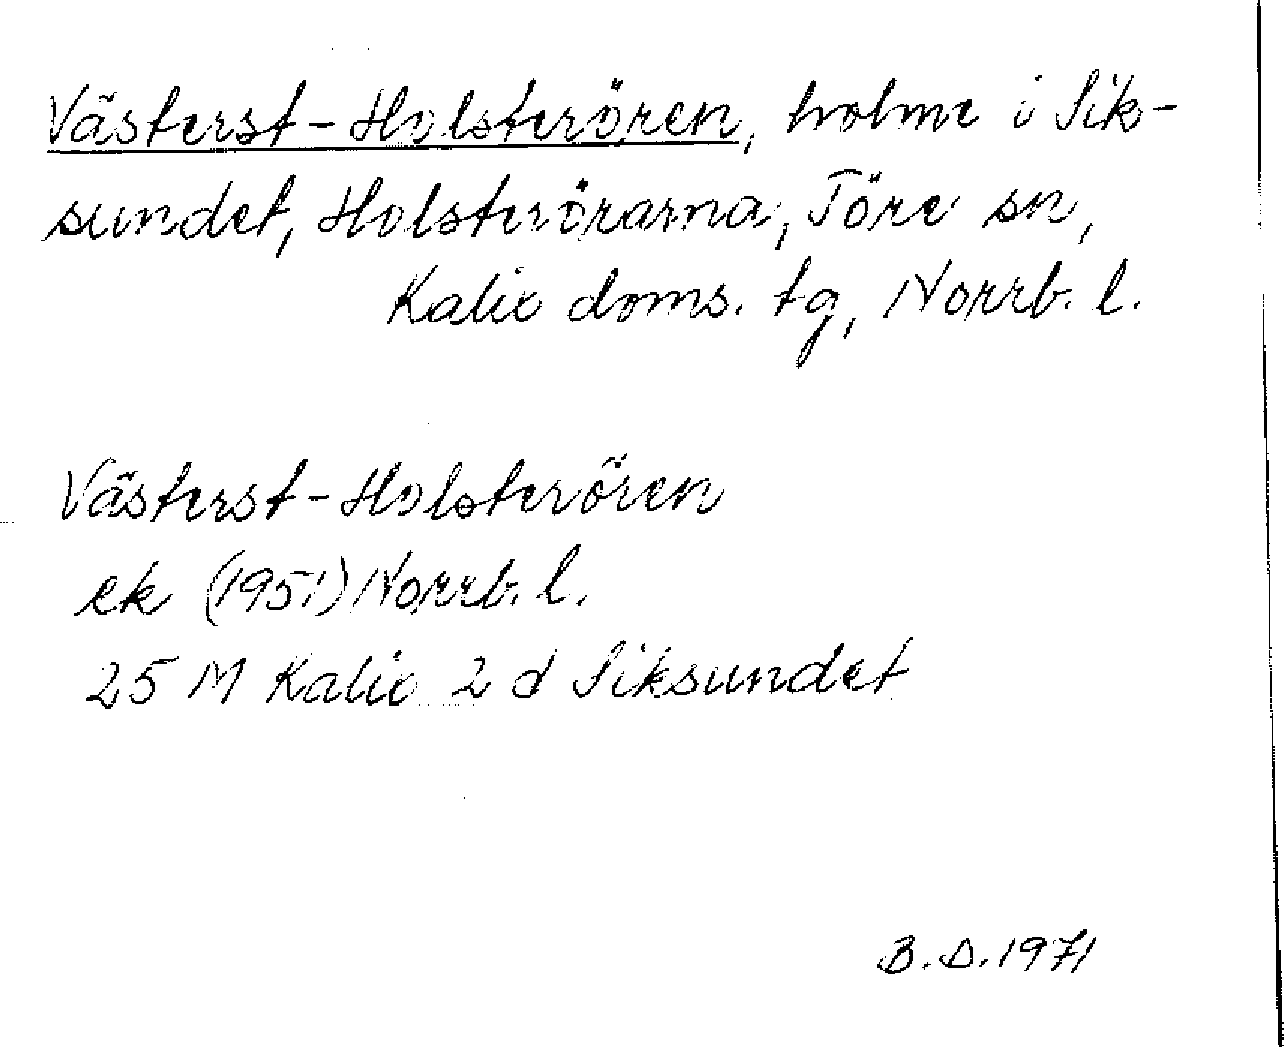 Västerst-Holsterören, holme i Sik-
sundet, Holsterörarna, Töre sn,
Kalix doms. tg, Norrb. l.
Västerst-Holsterören
ek (1951) Norrb. l.
25 M Kalix 2 d Siksundet
B.D. 1971